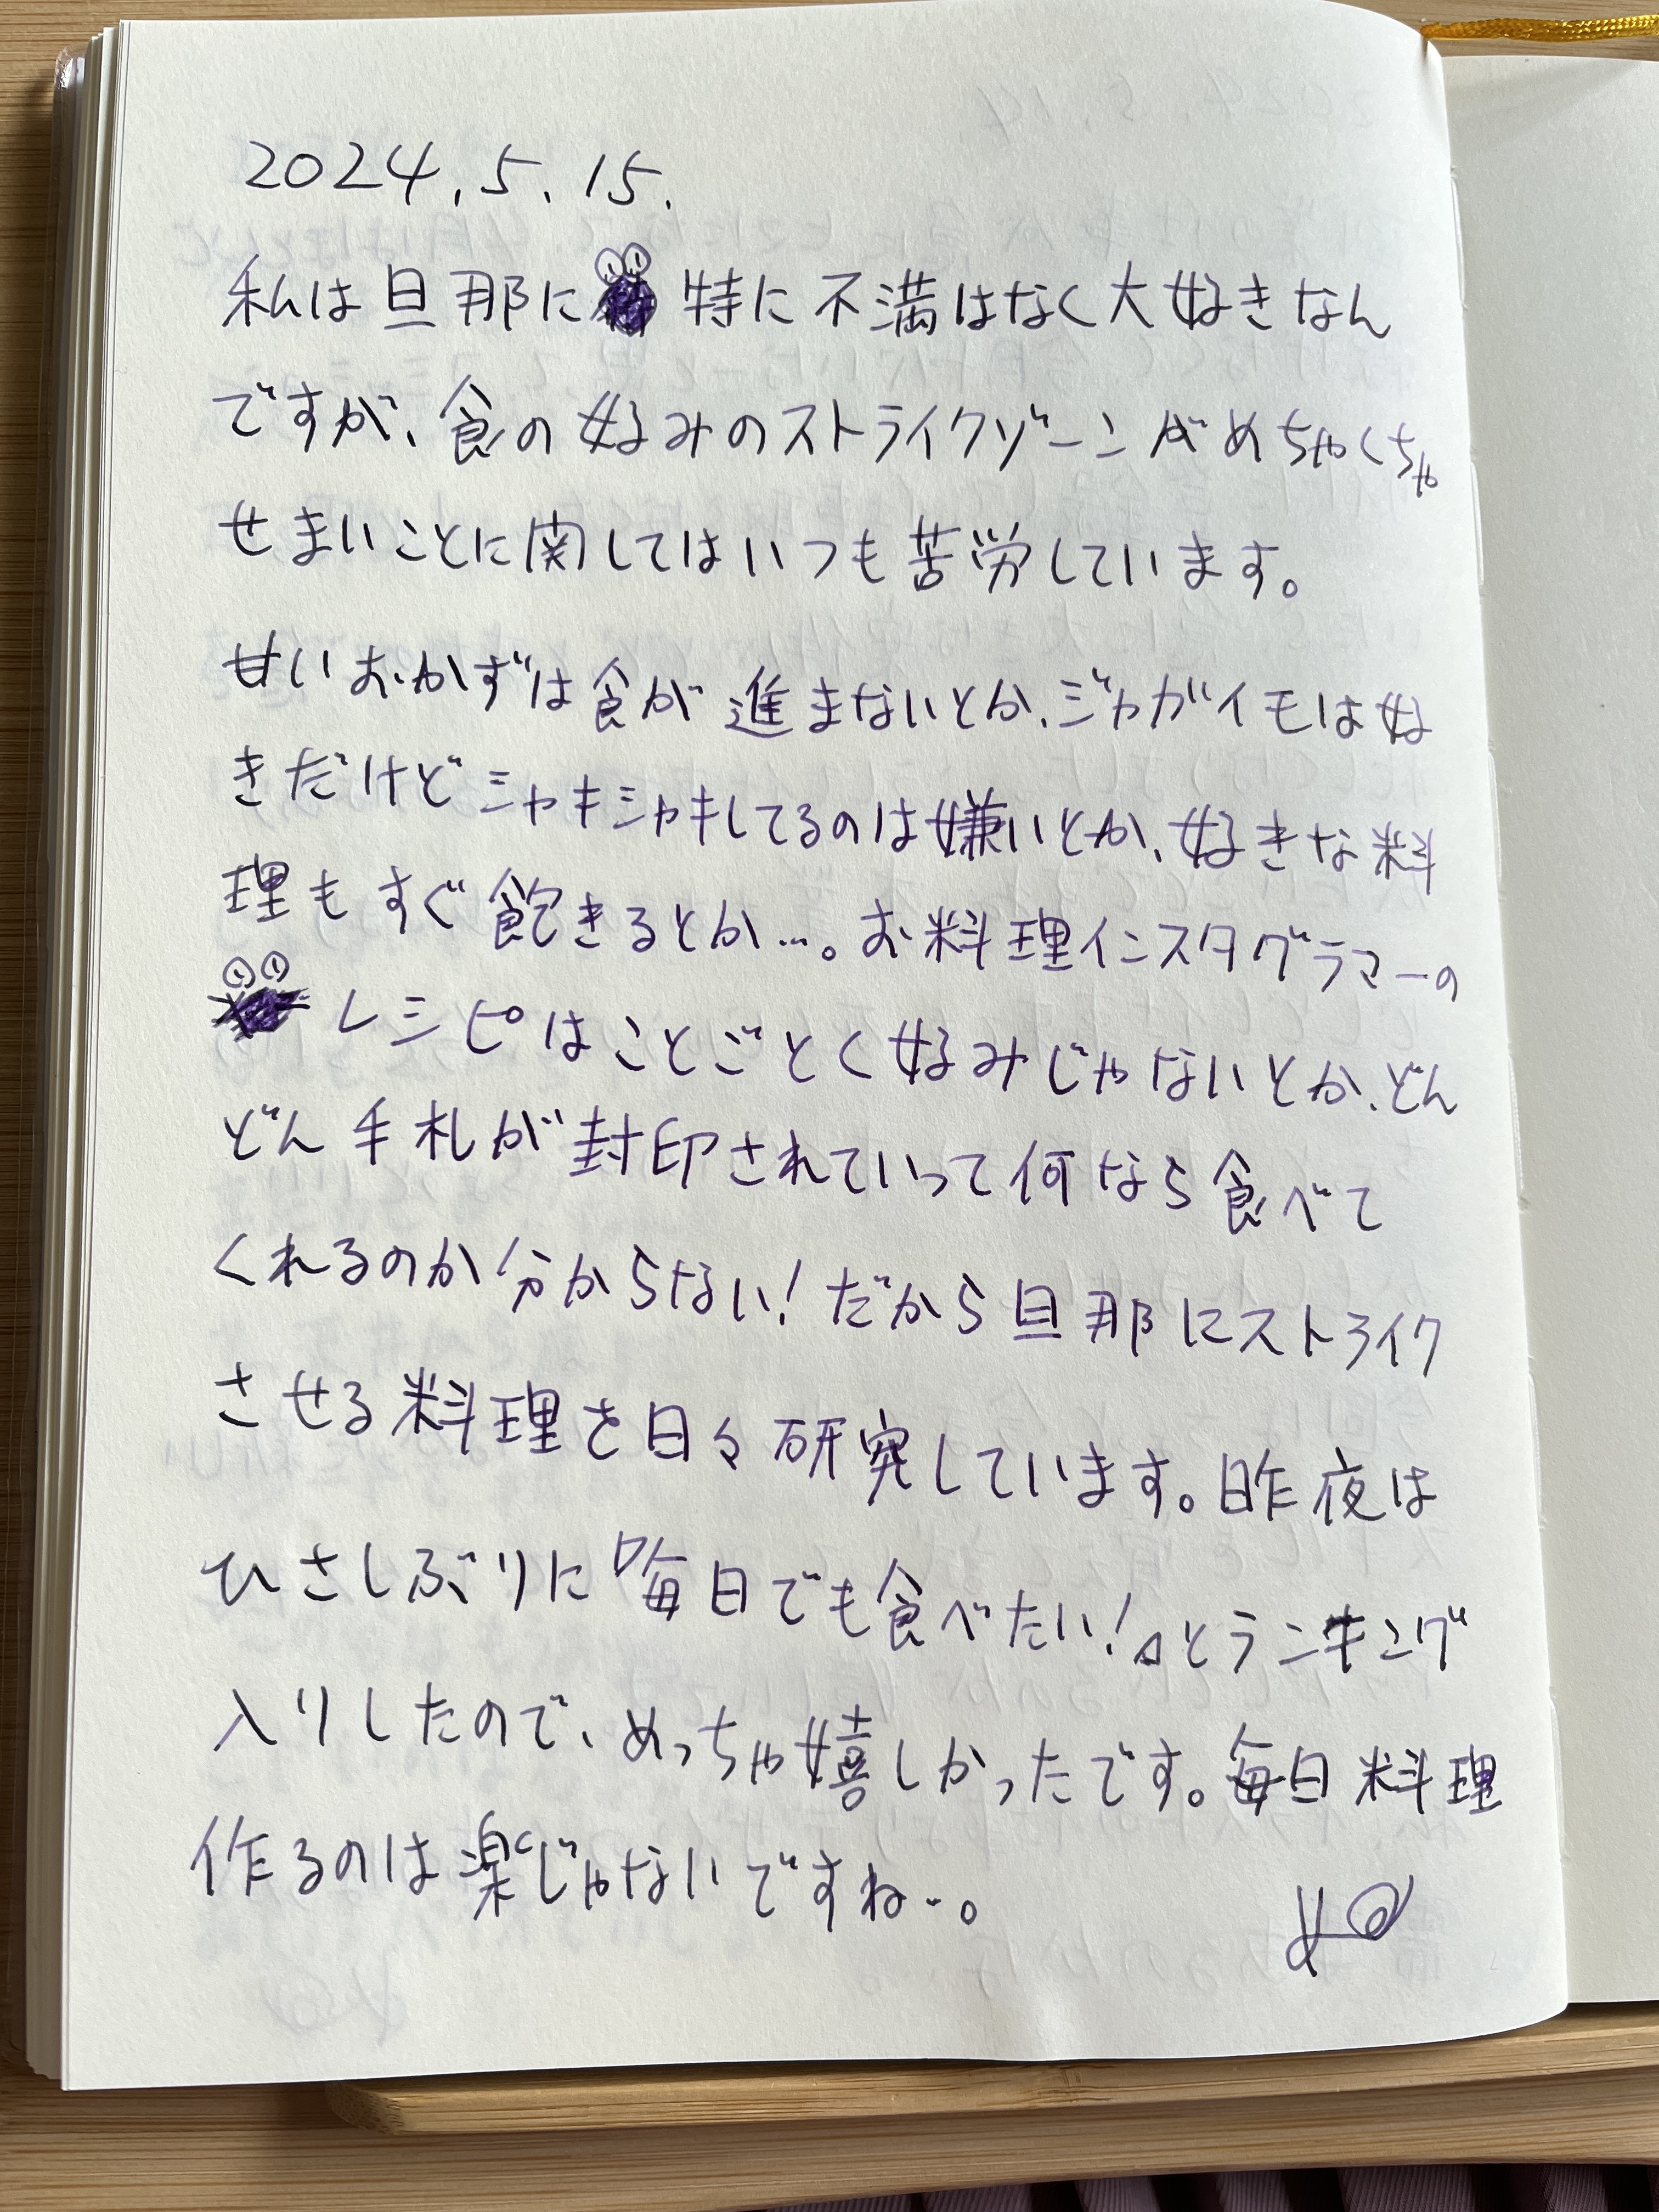 2024.5.15.
私は旦那に 特に不満はなく大好きなん
ですが、食の好みのストライクゾーンがめちゃくちゃ
せまいことに関してはいつも苦労しています。
甘いおかずは食が進まないとか、ジャガイモは好
きだけどシャキシャキしてるのは嫌いとか、好きな料
理もすぐ飽きるとか…。お料理インスタグラマーの
レシピはことごとく好みじゃないとか、どん
どん手札が封印されていって何なら食べて
くれるのか分からない!だから旦那にストライク
させる料理を日々研究しています。昨夜は
ひさしぶりに『毎日でも食べたい!』とランキング
入りしたので、めっちゃ嬉しかったです。毎日料理
作るのは楽じゃないですね…。